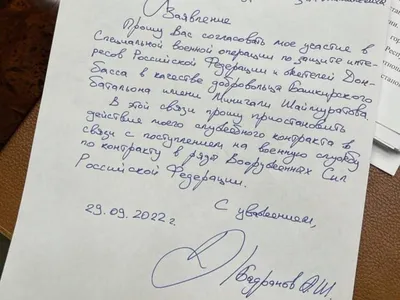 Заявление
Прошу Вас согласовать мое участие в
Специальной военной операции по защите инте-
ресов Российской Федерации и жителей Дон-
басса в качестве добровольца Башкирского
батальона имени Минигали Шаймуратова.
В этой связи прошу приостановить
действия моего служебного контракта в
связи с поступлением на военную службу
по контракту в ряды Вооруженных Сил
Российской Федерации.
С уважением,
29.09.2022 г.
Бадранов А.Ш.